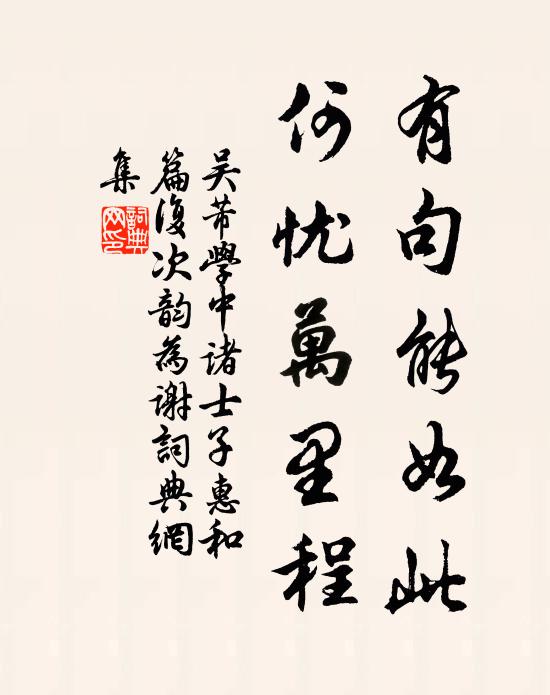 有句能如此
何忧萬里程
吴芾學中诸士子惠和
篇復次韵為谢詞典網
集
詞典
网印